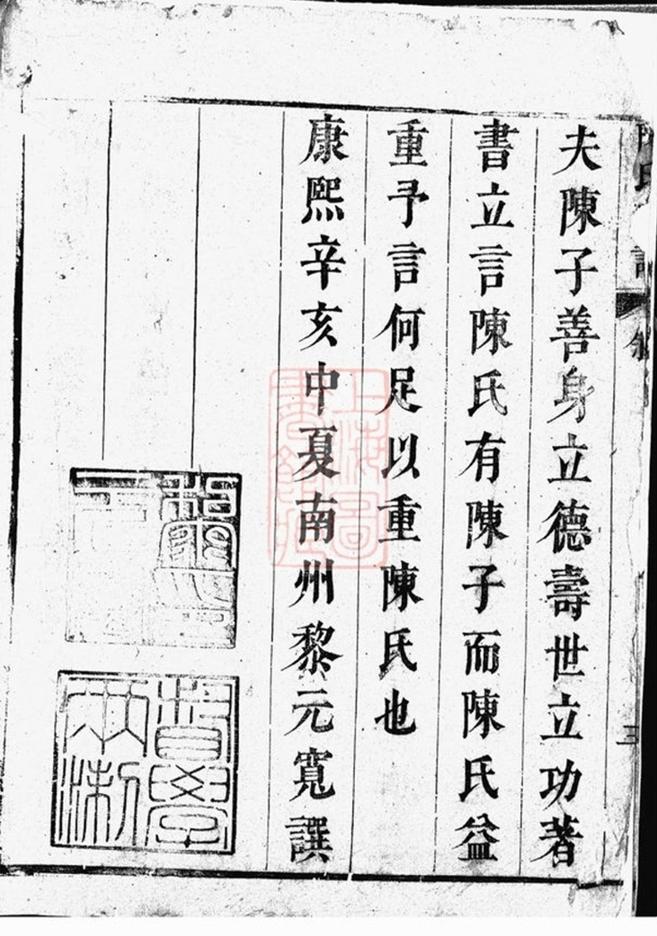 夫陳子善身立德壽世立功著
書立言陳氏有陳子而陳氏益
重予言何足以重陳氏也
康熙辛亥中夏南州黎元寬譔
三
上海圖書館藏
督學兩浙